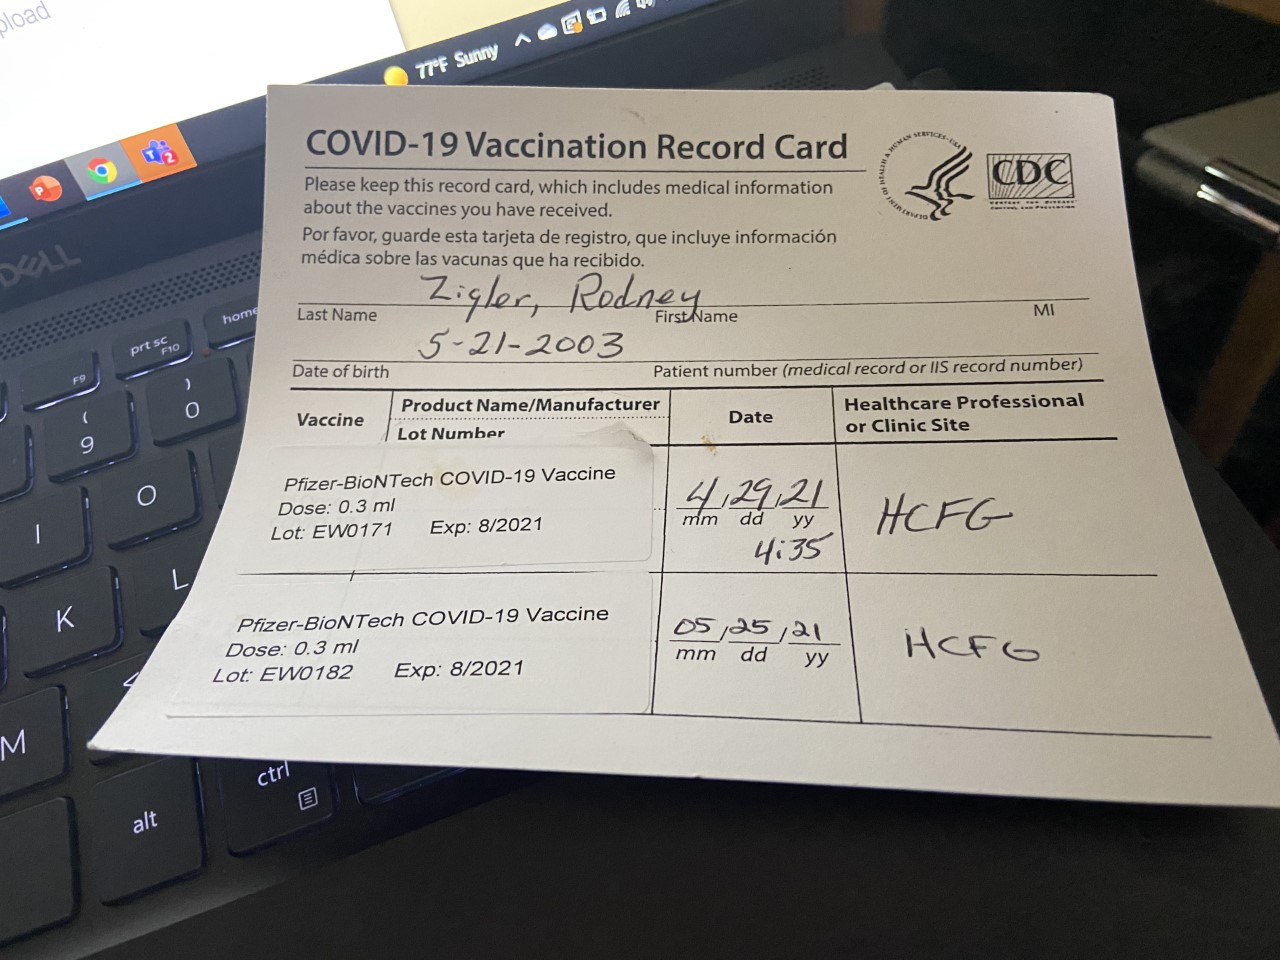 pload
77°F Sunny
P
T
2
DELL
home
prt sc
F10
F9
)
0
(
9
O
I
L
K
<
M
alt
ctrl
COVID-19 Vaccination Record Card
DEPARTMENT OF HEALTH & HUMAN SERVICES • USA
CDC
CENTERS FOR DISEASE
CONTROL AND PREVENTION
Please keep this record card, which includes medical information
about the vaccines you have received.
Por favor, guarde esta tarjeta de registro, que incluye información
médica sobre las vacunas que ha recibido.
Zigler, Rodney
Last Name First Name MI
5-21-2003
Date of birth Patient number (medical record or IIS record number)
Vaccine Product Name/Manufacturer Date Healthcare Professional
Lot Number or Clinic Site
Pfizer-BioNTech COVID-19 Vaccine
Dose: 0.3 ml
Lot: EW0171 Exp: 8/2021
4/29/21
mm dd yy
4:35
HCFG
Pfizer-BioNTech COVID-19 Vaccine
Dose: 0.3 ml
Lot: EW0182 Exp: 8/2021
05/25/21
mm dd yy
HCFG